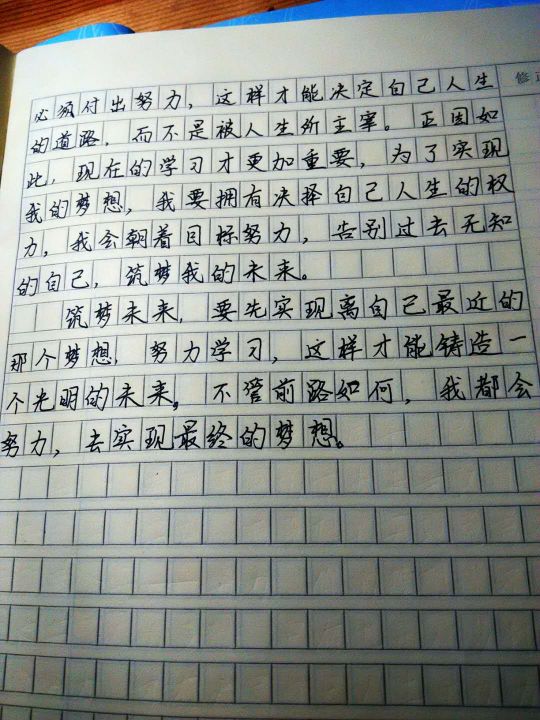 修
必须付出努力，这样才能决定自己人生
的道路，而不是被人生所主宰。正因如
此，现在的学习才更加重要，为了实现
我的梦想，我要拥有决择自己人生的权
力，我会朝着目标努力，告别过去无知
的自己，筑梦我的未来。
筑梦未来，要先实现离自己最近的
那个梦想，努力学习，这样才能铸造一
个光明的未来。不管前路如何，我都会
努力，去实现最终的梦想。